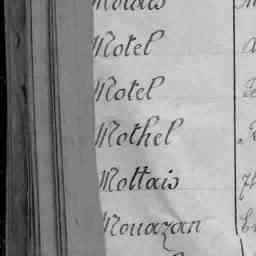 Motel
Motel
Mothel
Mottais
Mouazan